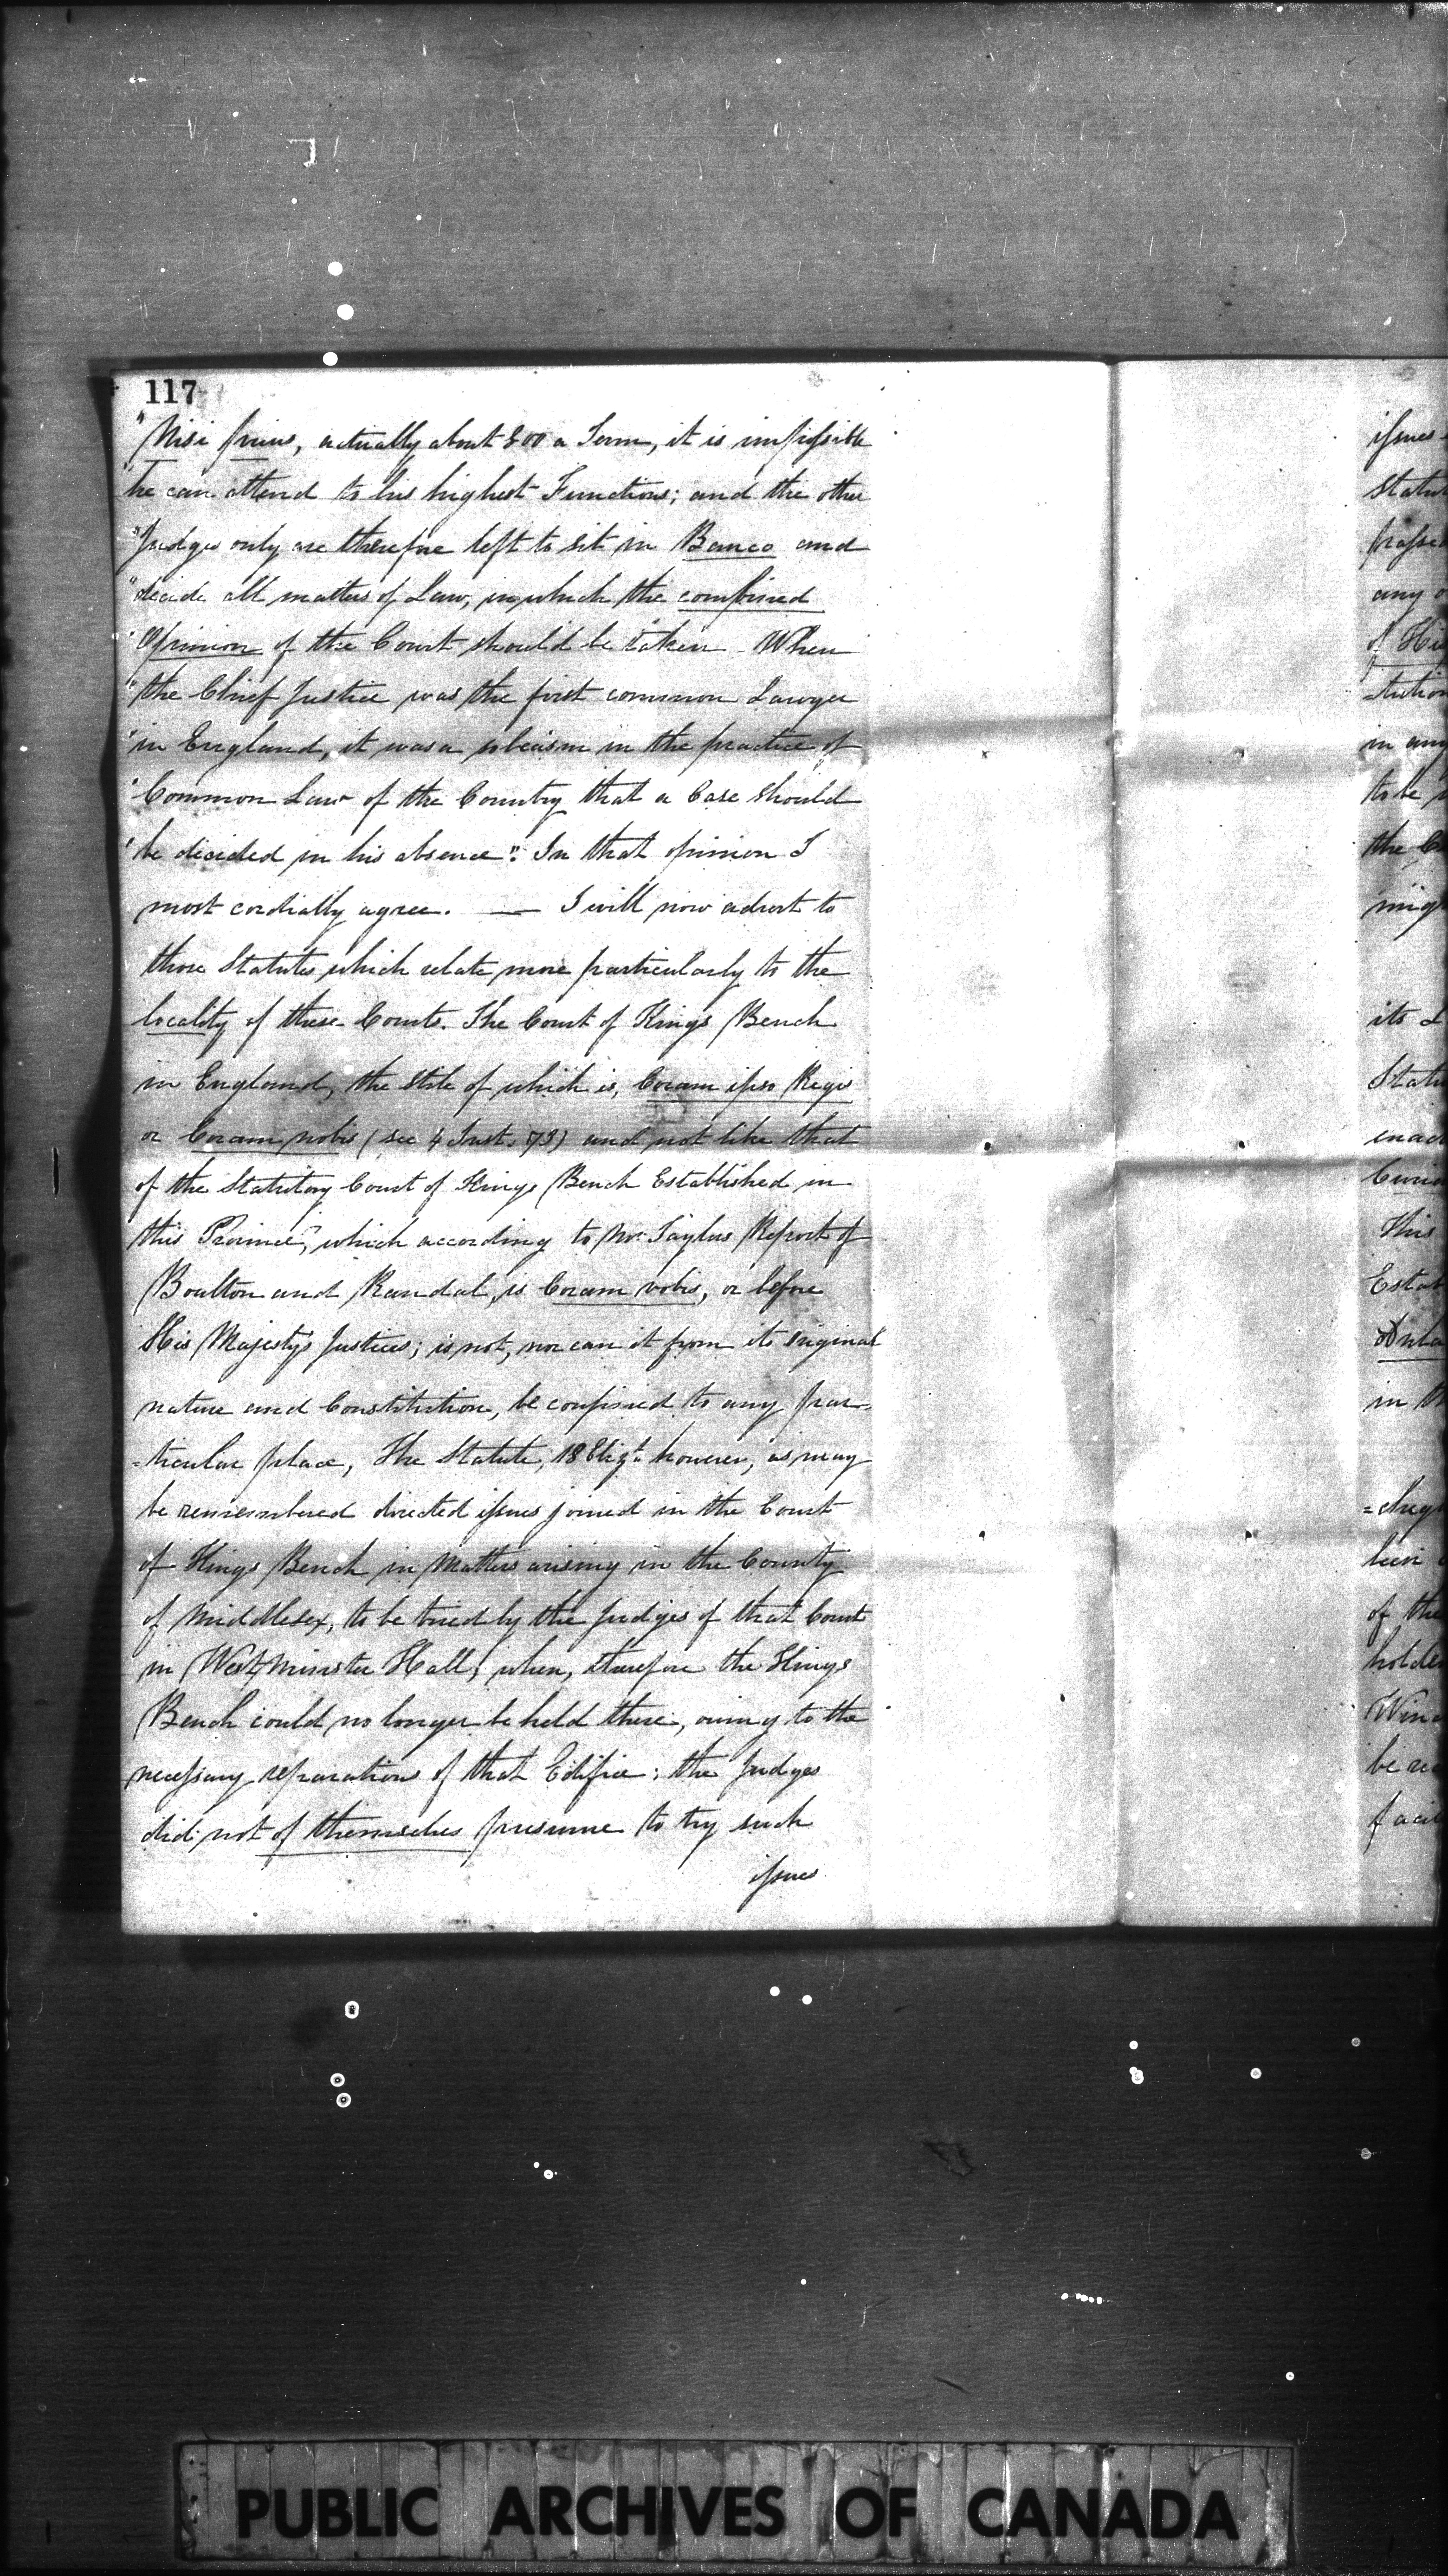 117
"Nisi prius, actually about 800 a Term, it is impossible
"he can attend to his highest Functions; and the other
"Judges only are therefore left to sit in Banco and
"decide all matters of Law, in which the combined
"Opinion of the Court should be taken. When
"the Chief Justice was the first common Lawyer
"in England, it was a solecism in the practice of
"Common Law of the Country that a Case should
"be decided in his absence". In that opinion I
most cordially agree. — I will now advert to
those Statutes which relate more particularly to the
locality of these Courts. The Court of Kings Bench
in England, the stile of which is, Coram ipso Rege
or Coram nobis (see 4 Inst. 73) and not like that
of the Statutory Court of Kings Bench Established in
this Province, which according to Mr. Taylors Report of
Boulton and Randal, is Coram vobis, or before
His Majesty's Justices; is not, nor can it from its original
nature and Constitution, be confined to any par-
=ticular place, The Statute, 18 Elizth however, as may
be remembered directed issues joined in the Court
of Kings Bench in Matters arising in the County
of Middlesex, to be tried by the Judges of that Court
in Westminster Hall, when, therefore the Kings
Bench could no longer be held there, owing to the
necessary reparations of that Edifice; the Judges
did not of themselves presume to try such
issues
issues
any
in any
to be
the
its
This
in
of the
PUBLIC ARCHIVES OF CANADA